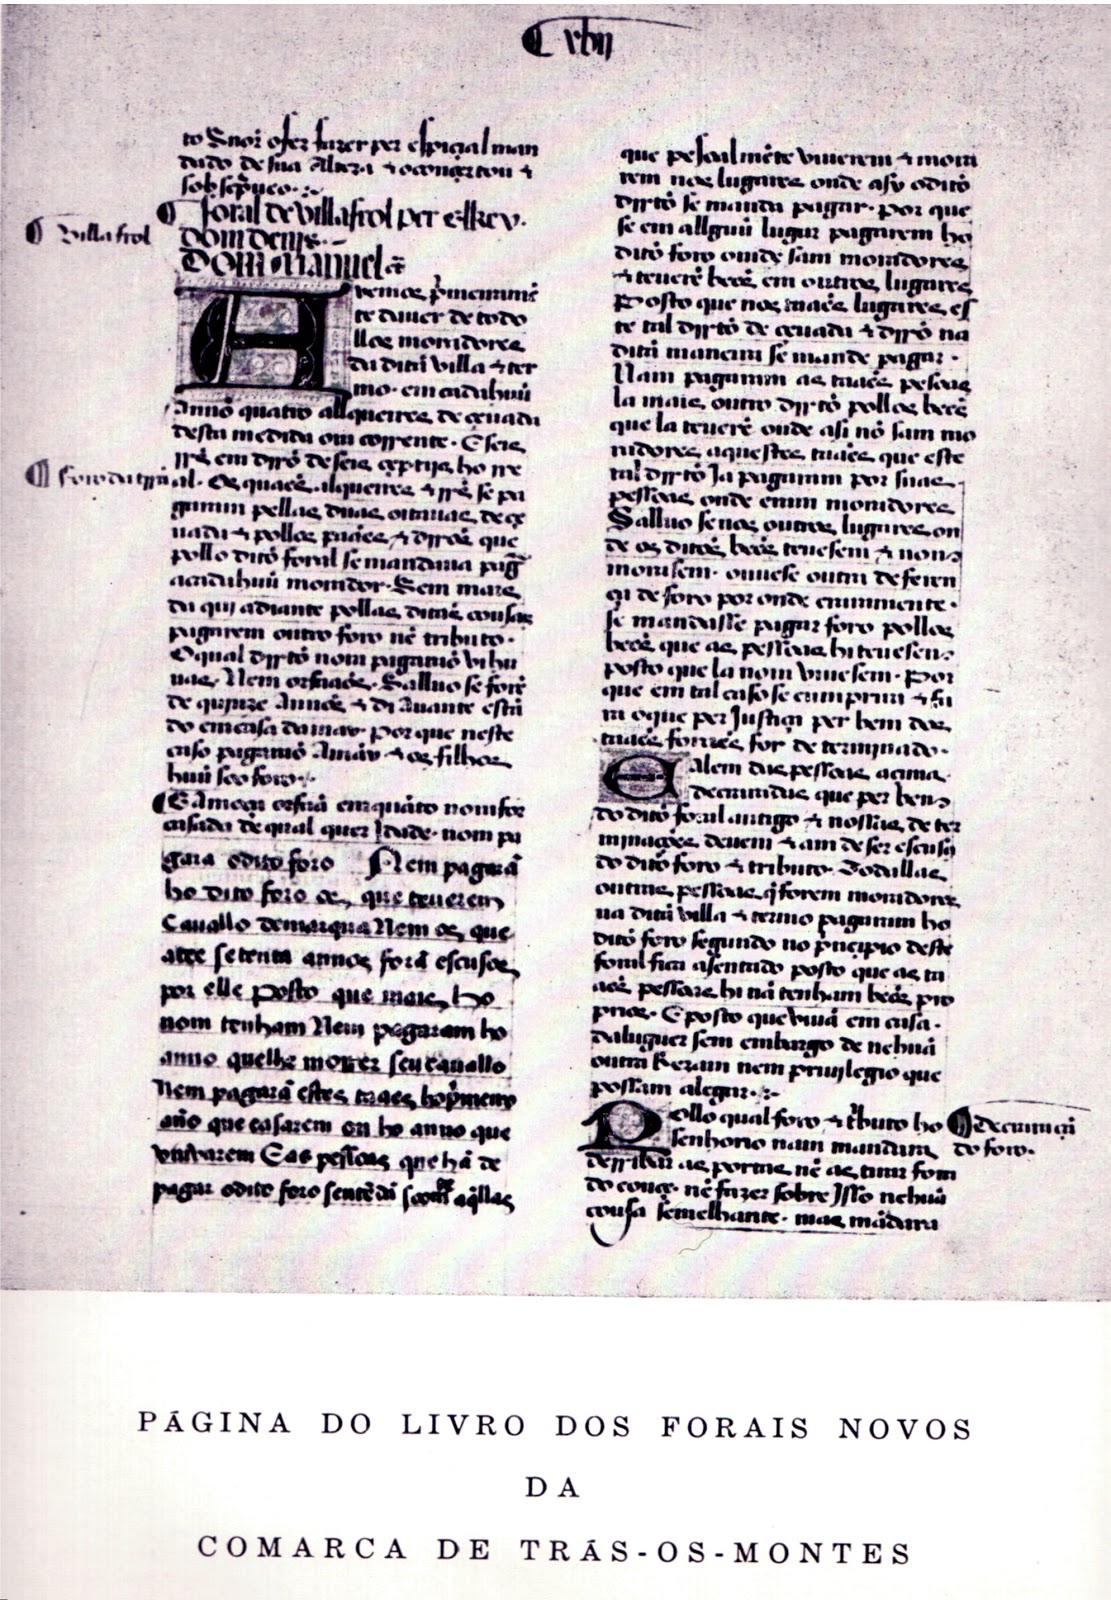 xbii
to Snor o fez fazer per espicial man
dado de sua Alteza & o conçertou &
sob
foral de villa frol per elRey
Villa frol
dom denis
Dom manuel &
Avemos
te daver de todo
llos moradores
da dita villa & ter
mo. em cada huũ
Anno quatro allqueires de çevada
desta medida ora corrente. E seis
em de seis çeptijs ho rre
foro da
al. Os quaes alqueires & se pa
garam pellas duas oitavas de çe
vada & pollos & que
pollo dito foral se mandava
a cada huũ morador. Sem mais
da qui adiante pellas ditas cousas
pagarem outro foro nẽ tributo.
O qual nom pagarã vihu
vas. Nem orfaãos. Salluo se forẽ
de quinze Annos & di Avante está
do em casa da may. por que neste
caso pagarã A may & os filhos
huũ soo foro
E A moça orfaã em quãto nom for
casada de qual quer Idade. nom pa
gara o dito foro Nem pagarã
ho dito foro os que teverem
Cavallo de marqua Nem os que
atee setenta annos forã escusos
por elle posto que mais ho
nom tenham Nem pagaram ho
anno que lhe morrer seu cavallo
Nem pagarã estes taaes ho
año que casarem ou ho anno que
vuvarem E as pessoas que hã de
pagar o dito foro aqllas
que pesoalmẽte viverem & mora
rem nos lugares onde asy o dito
se manda pagar. por que
se em allguũ lugar pagarem ho
dito foro omde sam moradores
& teverẽ beẽs em outros lugares
Posto que nos taaes lugares es
te tal de çevada & na
dita maneira se mande pagar.
Nam pagaram as taaes pesoas
la mais outro pollos beẽs
que la teverẽ onde asi nõ sam mo
radores aquestes taaes que este
tal Ja pagaram por suas
pessoas onde eram moradores
Salluo se nos outros lugares on
de os ditos beẽs tevesem & nom
morasem. ouvese outra deferen
ça de foro por onde craramente.
se mandasse pagar foro pollos
beẽs que as pessoas hi tevesem
posto que la nom vivesem. Por
que em tal caso se comprira & fa
ra o que per Justiça per bem dos
taaes foraes for determinado.
E alem das pessoas acima
decraradas que per bem
do dito foral antigo & nossas deter
minações devem & am de ser escusa
do dito foro & tributo. Todallas
outras pessoas q forem moradores
na dita villa & termo pagaram ho
dito foro segundo no principio deste
foral fica asentado posto que as ta
aes pessoas hi nã tenham beẽs pro
prios. E posto que vivã em casa.
daluguer sem embargo de nehuã
outra Rezam nem privilegio que
possam alegar
Pollo qual foro & tributo ho
decraraçã
senhorio nam mandara
do foro.
as portas nẽ as tirar fora
do couçe. nẽ fazer sobre Isso nehuã
cousa semelhante. mas mãdara
PÁGINA DO LIVRO DOS FORAIS NOVOS
DA
COMARCA DE TRÁS-OS-MONTES